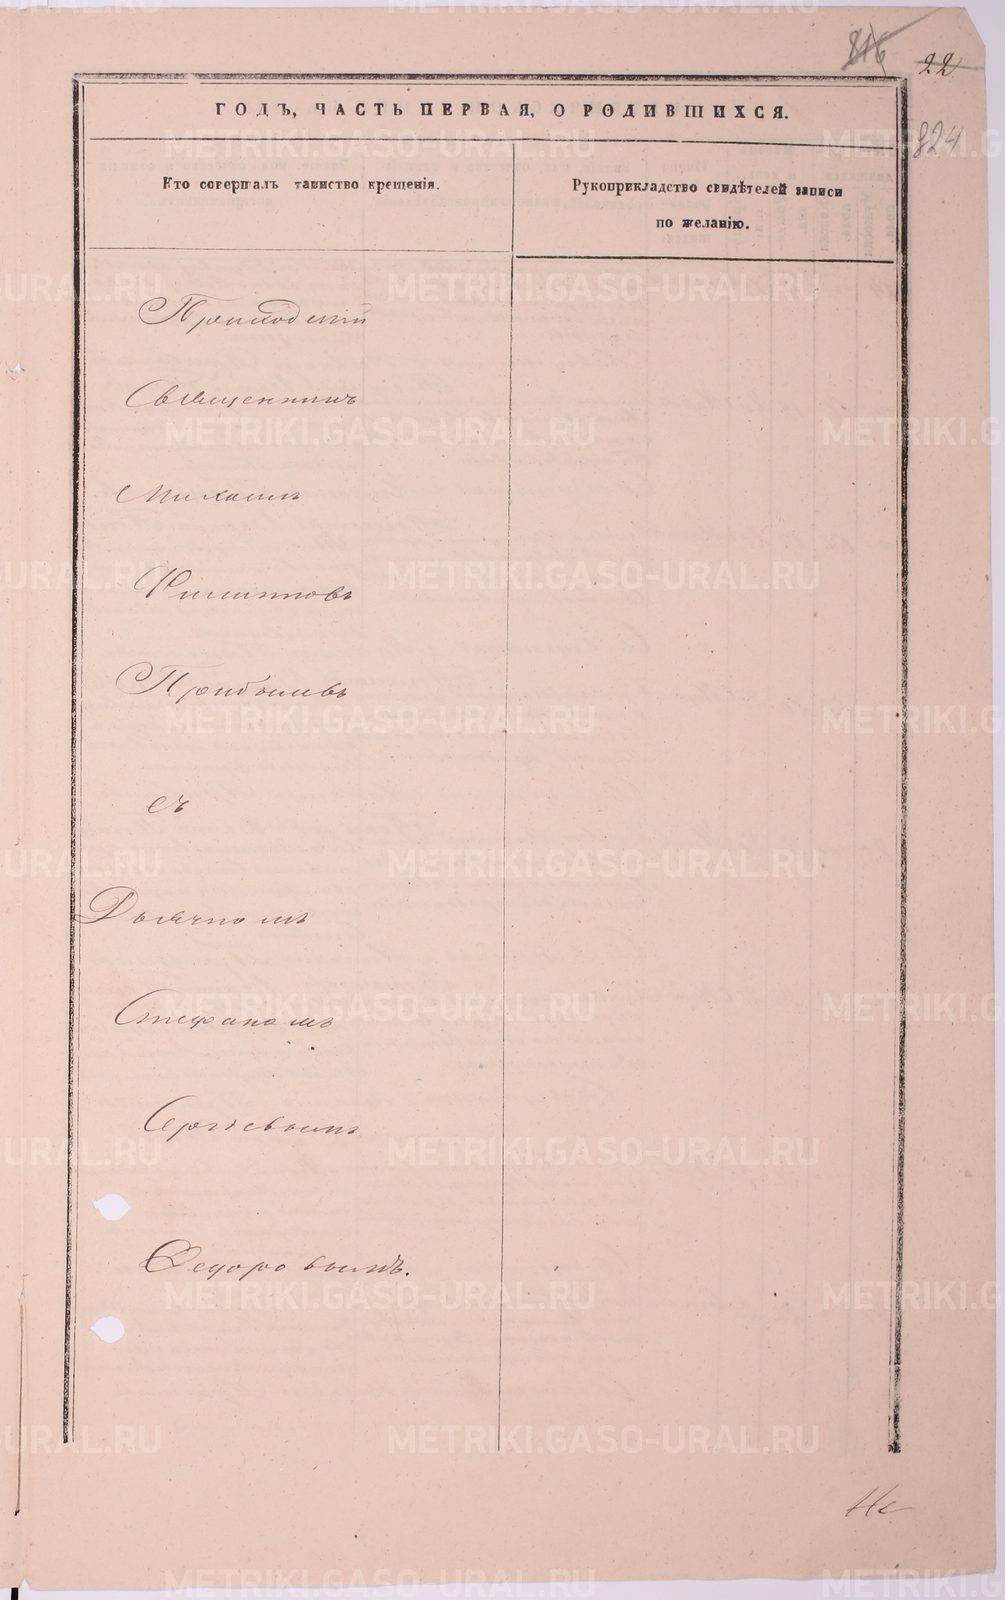 816 22
ГОДЪ, ЧАСТЬ ПЕРВАЯ, О РОДИВШИХСЯ.
824
Кто совершалъ таинство крещенія.
Рукоприкладство свидѣтелей записи
по желанію.
Приходскій
Священникъ
Михаилъ
Филипповъ
Прибылевъ
съ
Дьячкомъ
Стефаномъ
Сергіевымъ
Федоровымъ.
Не
METRIKI.GASO-URAL.RU